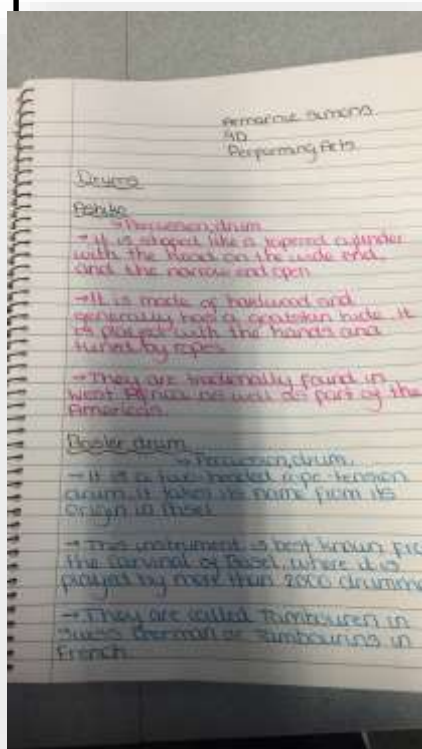 4D
Performing Arts
Drums
Ashiko
→ Percussion, drum
→ It is shaped like a tapered cylinder
with the head on the wide end,
and the narrow end open
→ It is made of hardwood and
generally has a goatskin hide. It
is played with the hands and
tuned by ropes
→ They are traditionally found in
West Africa as well as part of the
Americas.
Basler drum
→ Percussion, drum.
→ It is a two-headed rope-tension
drum. It takes its name from its
origin in
→ This instrument is best known
the Carnival of Basel, where it is
played by more than 2000
→ They are called Tambouren in
Swiss German or in
French.